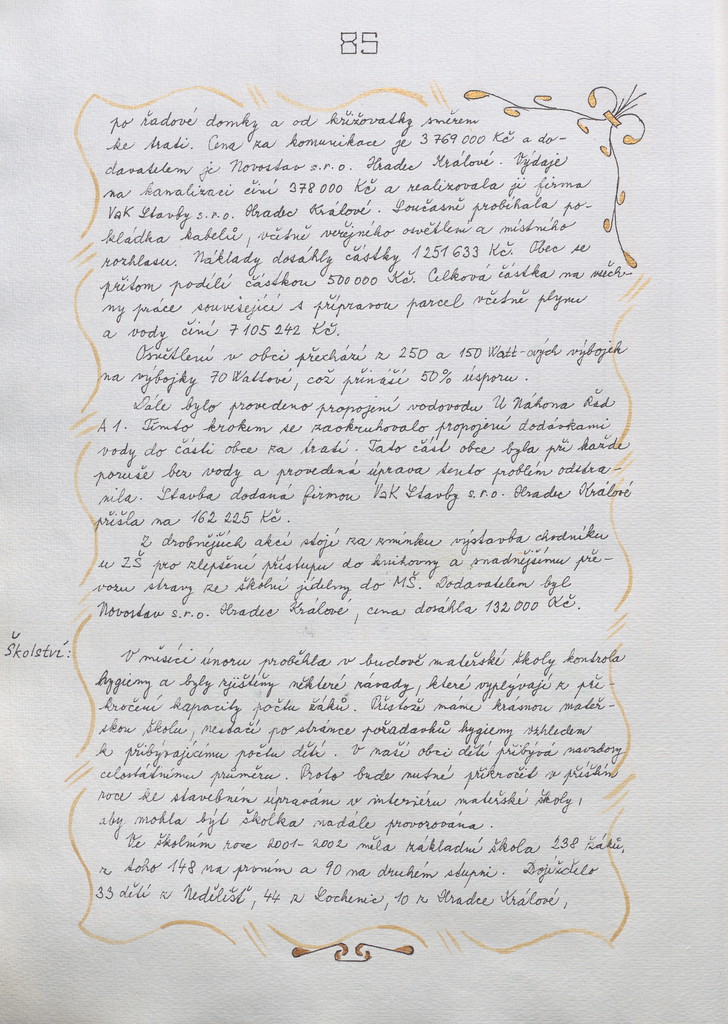 85
po řadové domky a od křižovatky směrem
ke trati. Cena za komunikace je 3 769 000 Kč a do-
davatelem je Novostav s.r.o. Hradec Králové. Výdaje
na kanalizaci činí 378 000 Kč a realizovala ji firma
VaK Stavby s.r.o. Hradec Králové. Současně probíhala po-
kládka kabelů, včetně veřejného osvětlení a místního
rozhlasu. Náklady dosáhly částky 1 251 633 Kč. Obec se
přitom podílí částkou 500 000 Kč. Celková částka na všech-
ny práce související s přípravou parcel včetně plynu
a vody činí 7 105 242 Kč.
Osvětlení v obci přechází z 250 a 150 Watt-ových výbojek
na výbojky 70 Wattové, což přináší 50% úsporu.
Dále bylo provedeno propojení vodovodu U Náhona Řad
A 1. Tímto krokem se zaokruhovalo propojení dodávkami
vody do části obce za tratí. Tato část obce byla při každé
poruše bez vody a provedená úprava tento problém odstra-
nila. Stavba dodaná firmou VaK Stavby s.r.o. Hradec Králové
přišla na 162 225 Kč.
Z drobnějších akcí stojí za zmínku výstavba chodníku
u ZŠ pro zlepšení přístupu do knihovny a snadnějšímu pře-
vozu stravy ze školní jídelny do MŠ. Dodavatelem byl
Novostav s.r.o. Hradec Králové, cena dosáhla 132 000 Kč.
Školství:
V měsíci únoru proběhla v budově mateřské školy kontrola
hygieny a byly zjištěny některé závady, které vyplývají z pře-
kročení kapacity počtu žáků. Přestože máme krásnou mateř-
skou školu, nestačí po stránce požadavků hygieny vzhledem
k přibývajícímu počtu dětí. V naší obci dětí přibývá navzdory
celostátnímu průměru. Proto bude nutné přikročit v příštím
roce ke stavebním úpravám v interiéru mateřské školy,
aby mohla být školka nadále provozována.
Ve školním roce 2001-2002 měla základní škola 238 žáků,
z toho 148 na prvním a 90 na druhém stupni. Dojíždělo
33 dětí z Nedělišť, 44 z Lochenic, 10 z Hradce Králové,